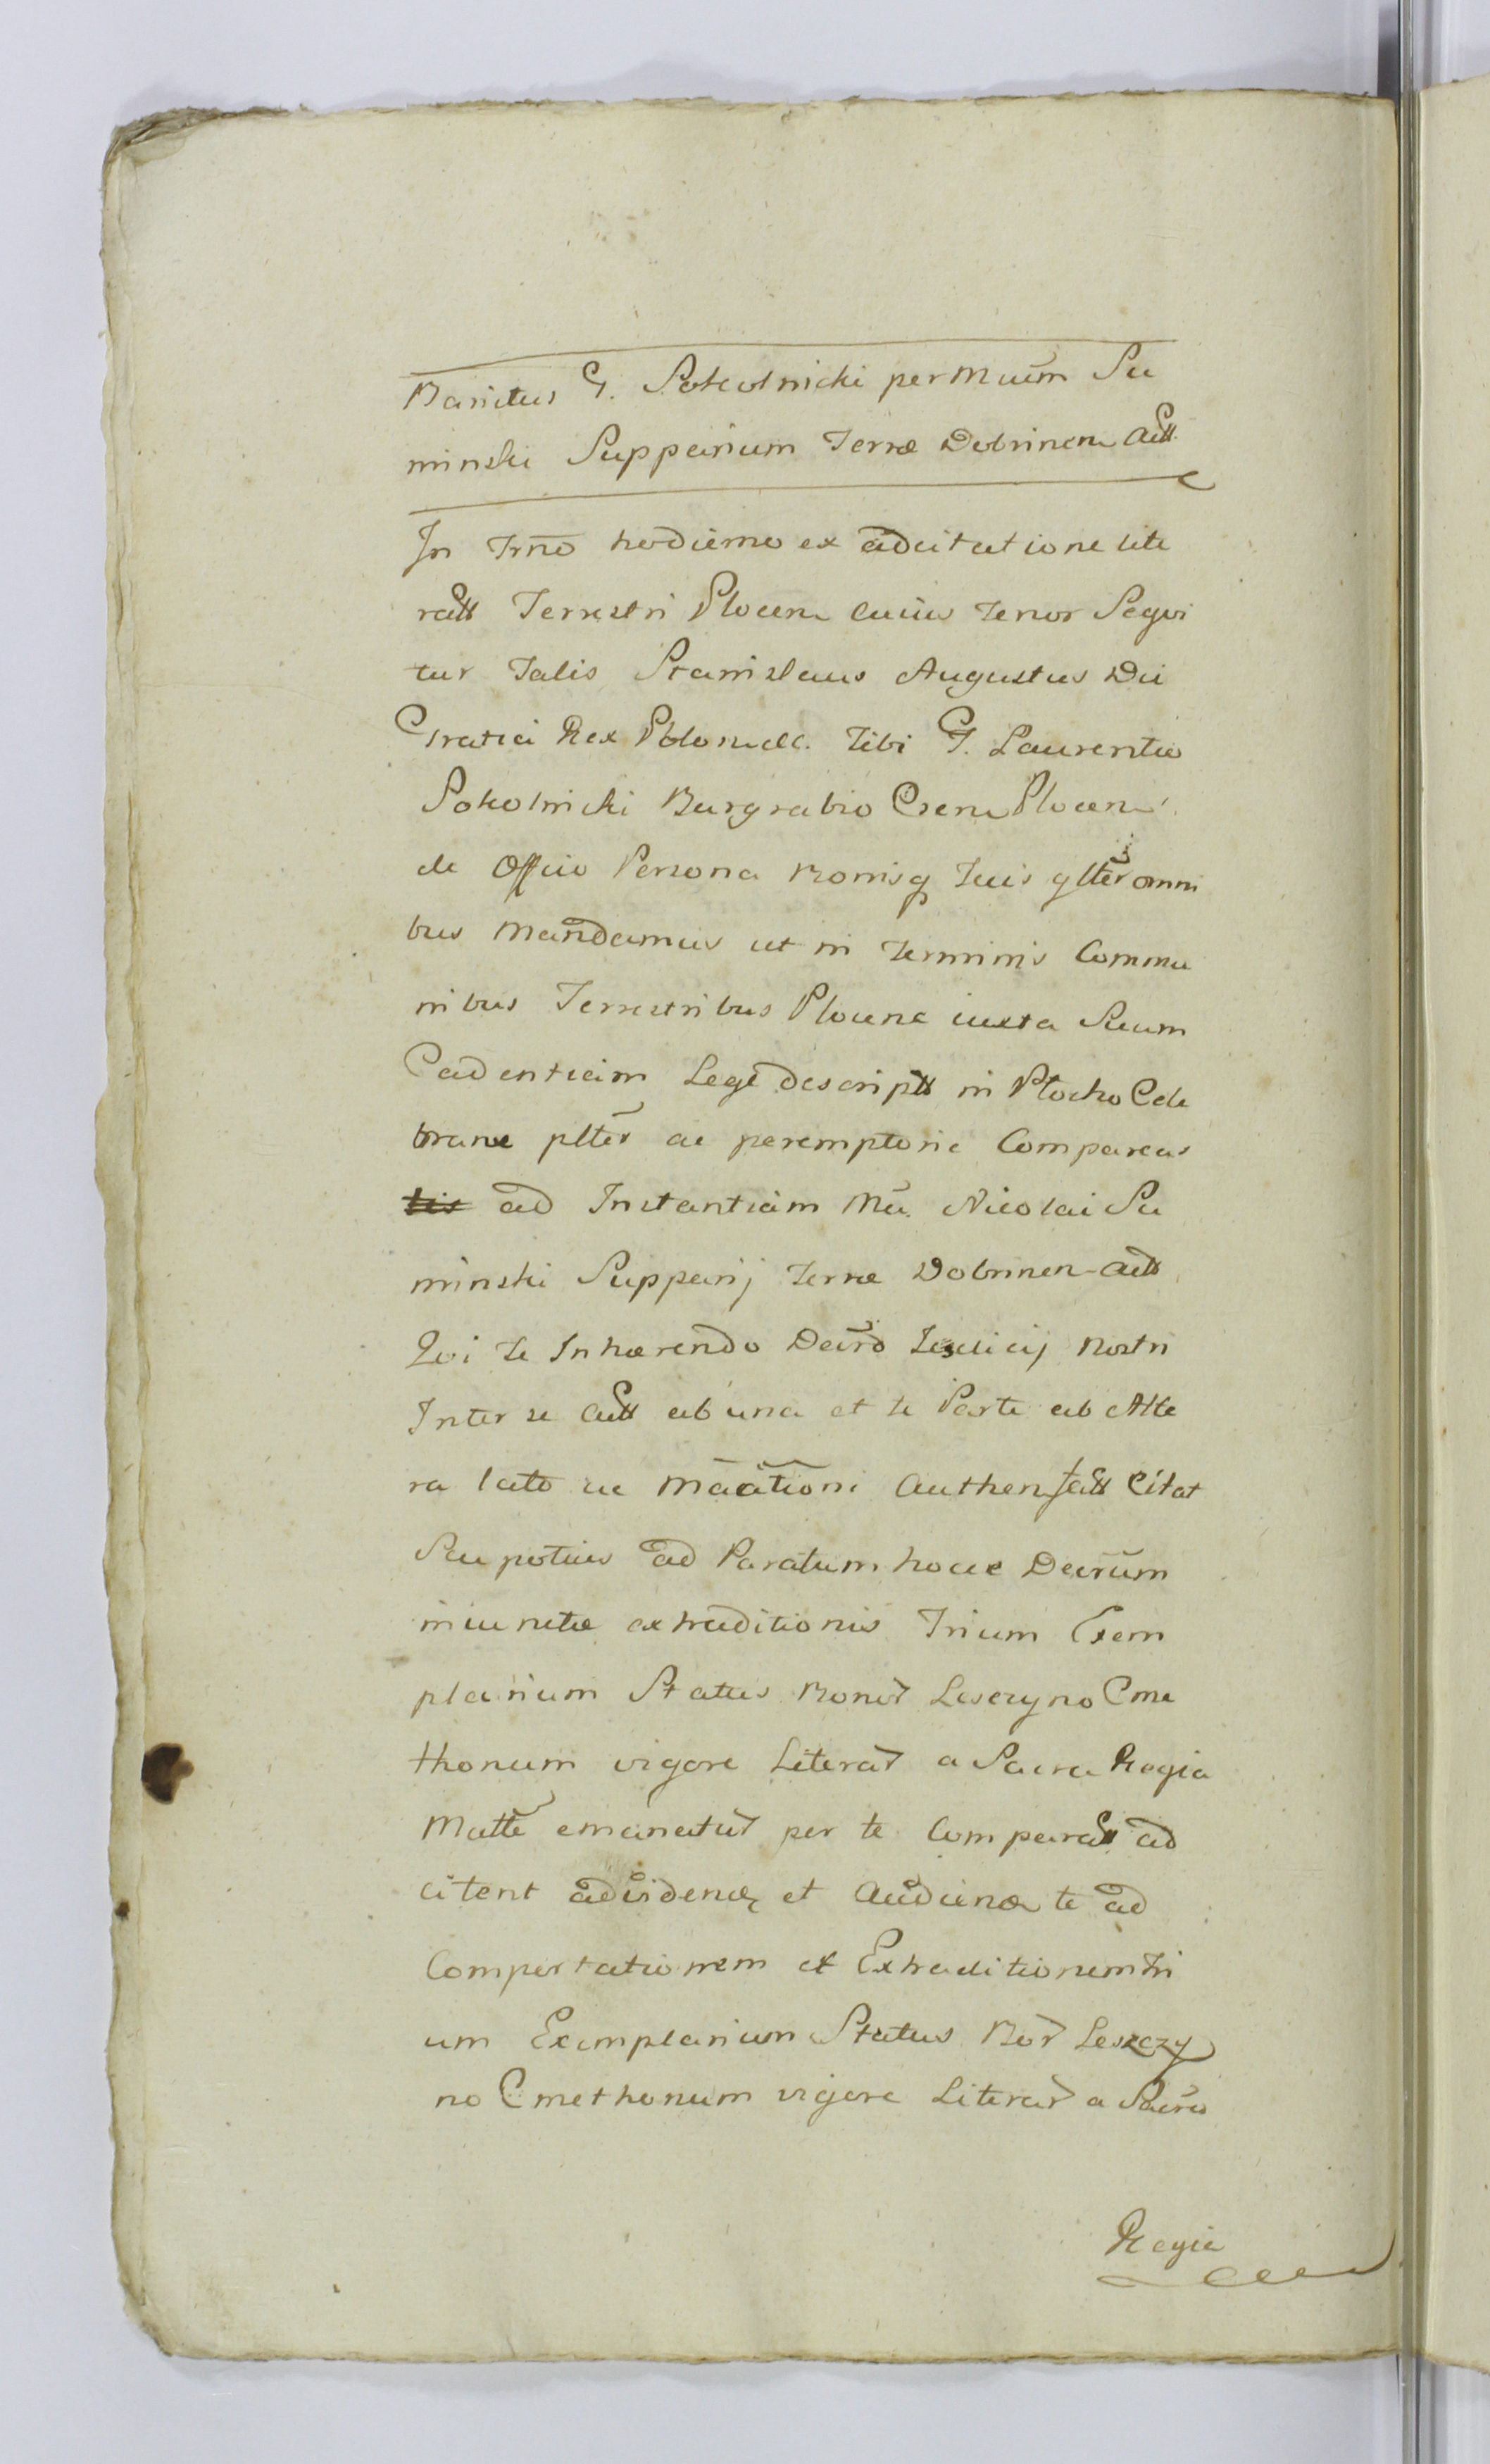 Banitus G. Sokolnicki per Mūm Su
minski Suppanum Terræ Dobrinen Act.
In Trno hodierno ex adcitatione lite
rali Terrestri Plocen cuius tenor Sequi
tur Talis Stanislaus Augustus Dei
Gratia Rex Polon: &c. Tibi G. Laurentio
Sokolnicki Burgrabio Cren Plocen:
de Officio Persona Bonisq Tuis glter omni
bus Mandamus ut in Terminis Commu
nibus Terrestribus Plocen: iuxta Suum
Cadentiam Lege descript in Plocko Cele
brane plter ac peremptorie Compareas
ad Instantiam Mū. Nicolai Su
minski Supparij Terræ Dobrinen Act
Qui te Inhærendo Decro Iudicij Nostri
Inter se Act ab una et te Parte ab Alte
ra lato ac Citat
Seu potius ad Paratum hocce Decrum
iniunctæ extraditionis Trium Exem
plarium Status Bonor Leszczyno Cme
thonum vigore Literar a Sacra Regia
Matte emanatur per te Comparat ad
citent advidend et Audiend te ad
Comportationem et Extraditionem Tri
um Exemplarium Status Bor Leszczy
no Cmethonum vigore Literar a Sacra
Regia